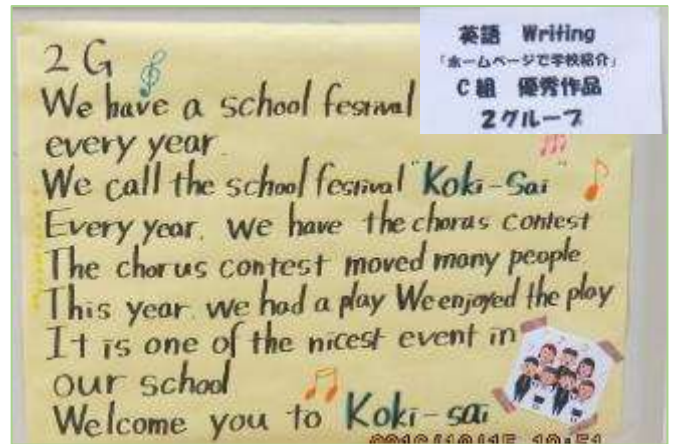 英語 Writing
「ホームページで学校紹介」
C組 優秀作品
2グループ
2G
We have a school festival
every year.
We call the school festival "Koki-Sai"
Every year, we have the chorus contest
The chorus contest moved many people
This year, we had a play We enjoyed the play
It is one of the nicest event in
our school
Welcome you to Koki-sai